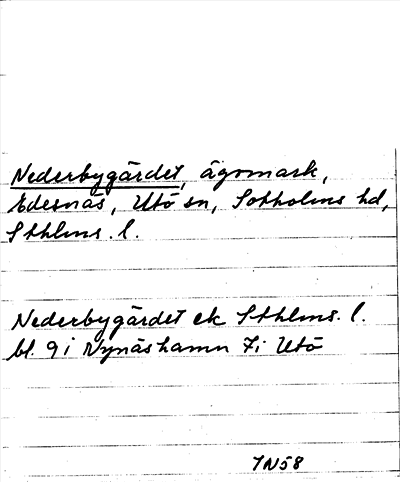 Nederbygärdet, ägomark,
Edesnäs, Utö sn, Sotholms hd,
Sthlms. l.
Nederbygärdet ek Sthlms. l.
bl. 9 i Nynäshamn 7i Utö
IN58